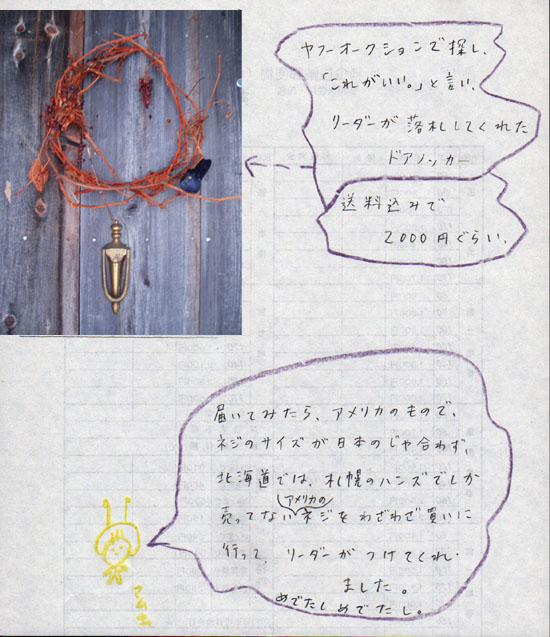 ヤフーオークションで探し、
「これがいい。」と言い、
リーダーが落札してくれた
ドアノッカー
送料込みで
2000円ぐらい。
届いてみたら、アメリカのもので、
ネジのサイズが日本のじゃ合わず、
北海道では、札幌のハンズでしか
アメリカの
売ってないネジをわざわざ買いに
行って、リーダーがつけてくれ
ました。
めでたしめでたし。